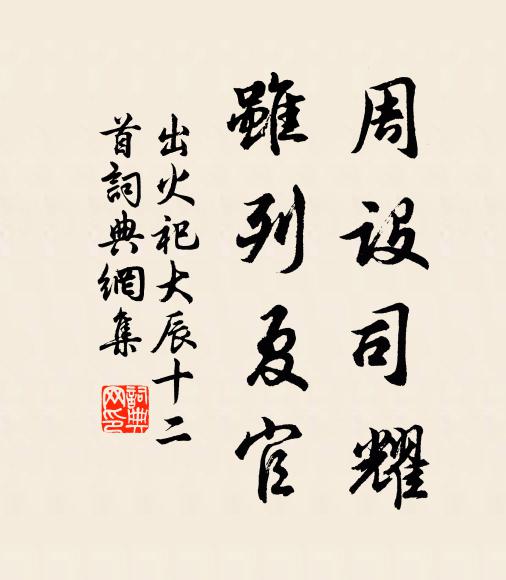 周設司耀
雖列夏官
出火祀大辰十二
首詞典網集
詞典
网印